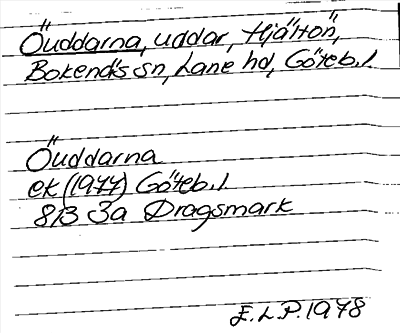 Öuddarna, uddar, Hjältön,
Bokenäs sn, Lane hd, Göteb. l.
Öuddarna
ek (1977) Göteb. l.
8B 3a Dragsmark
E.L.P. 1978